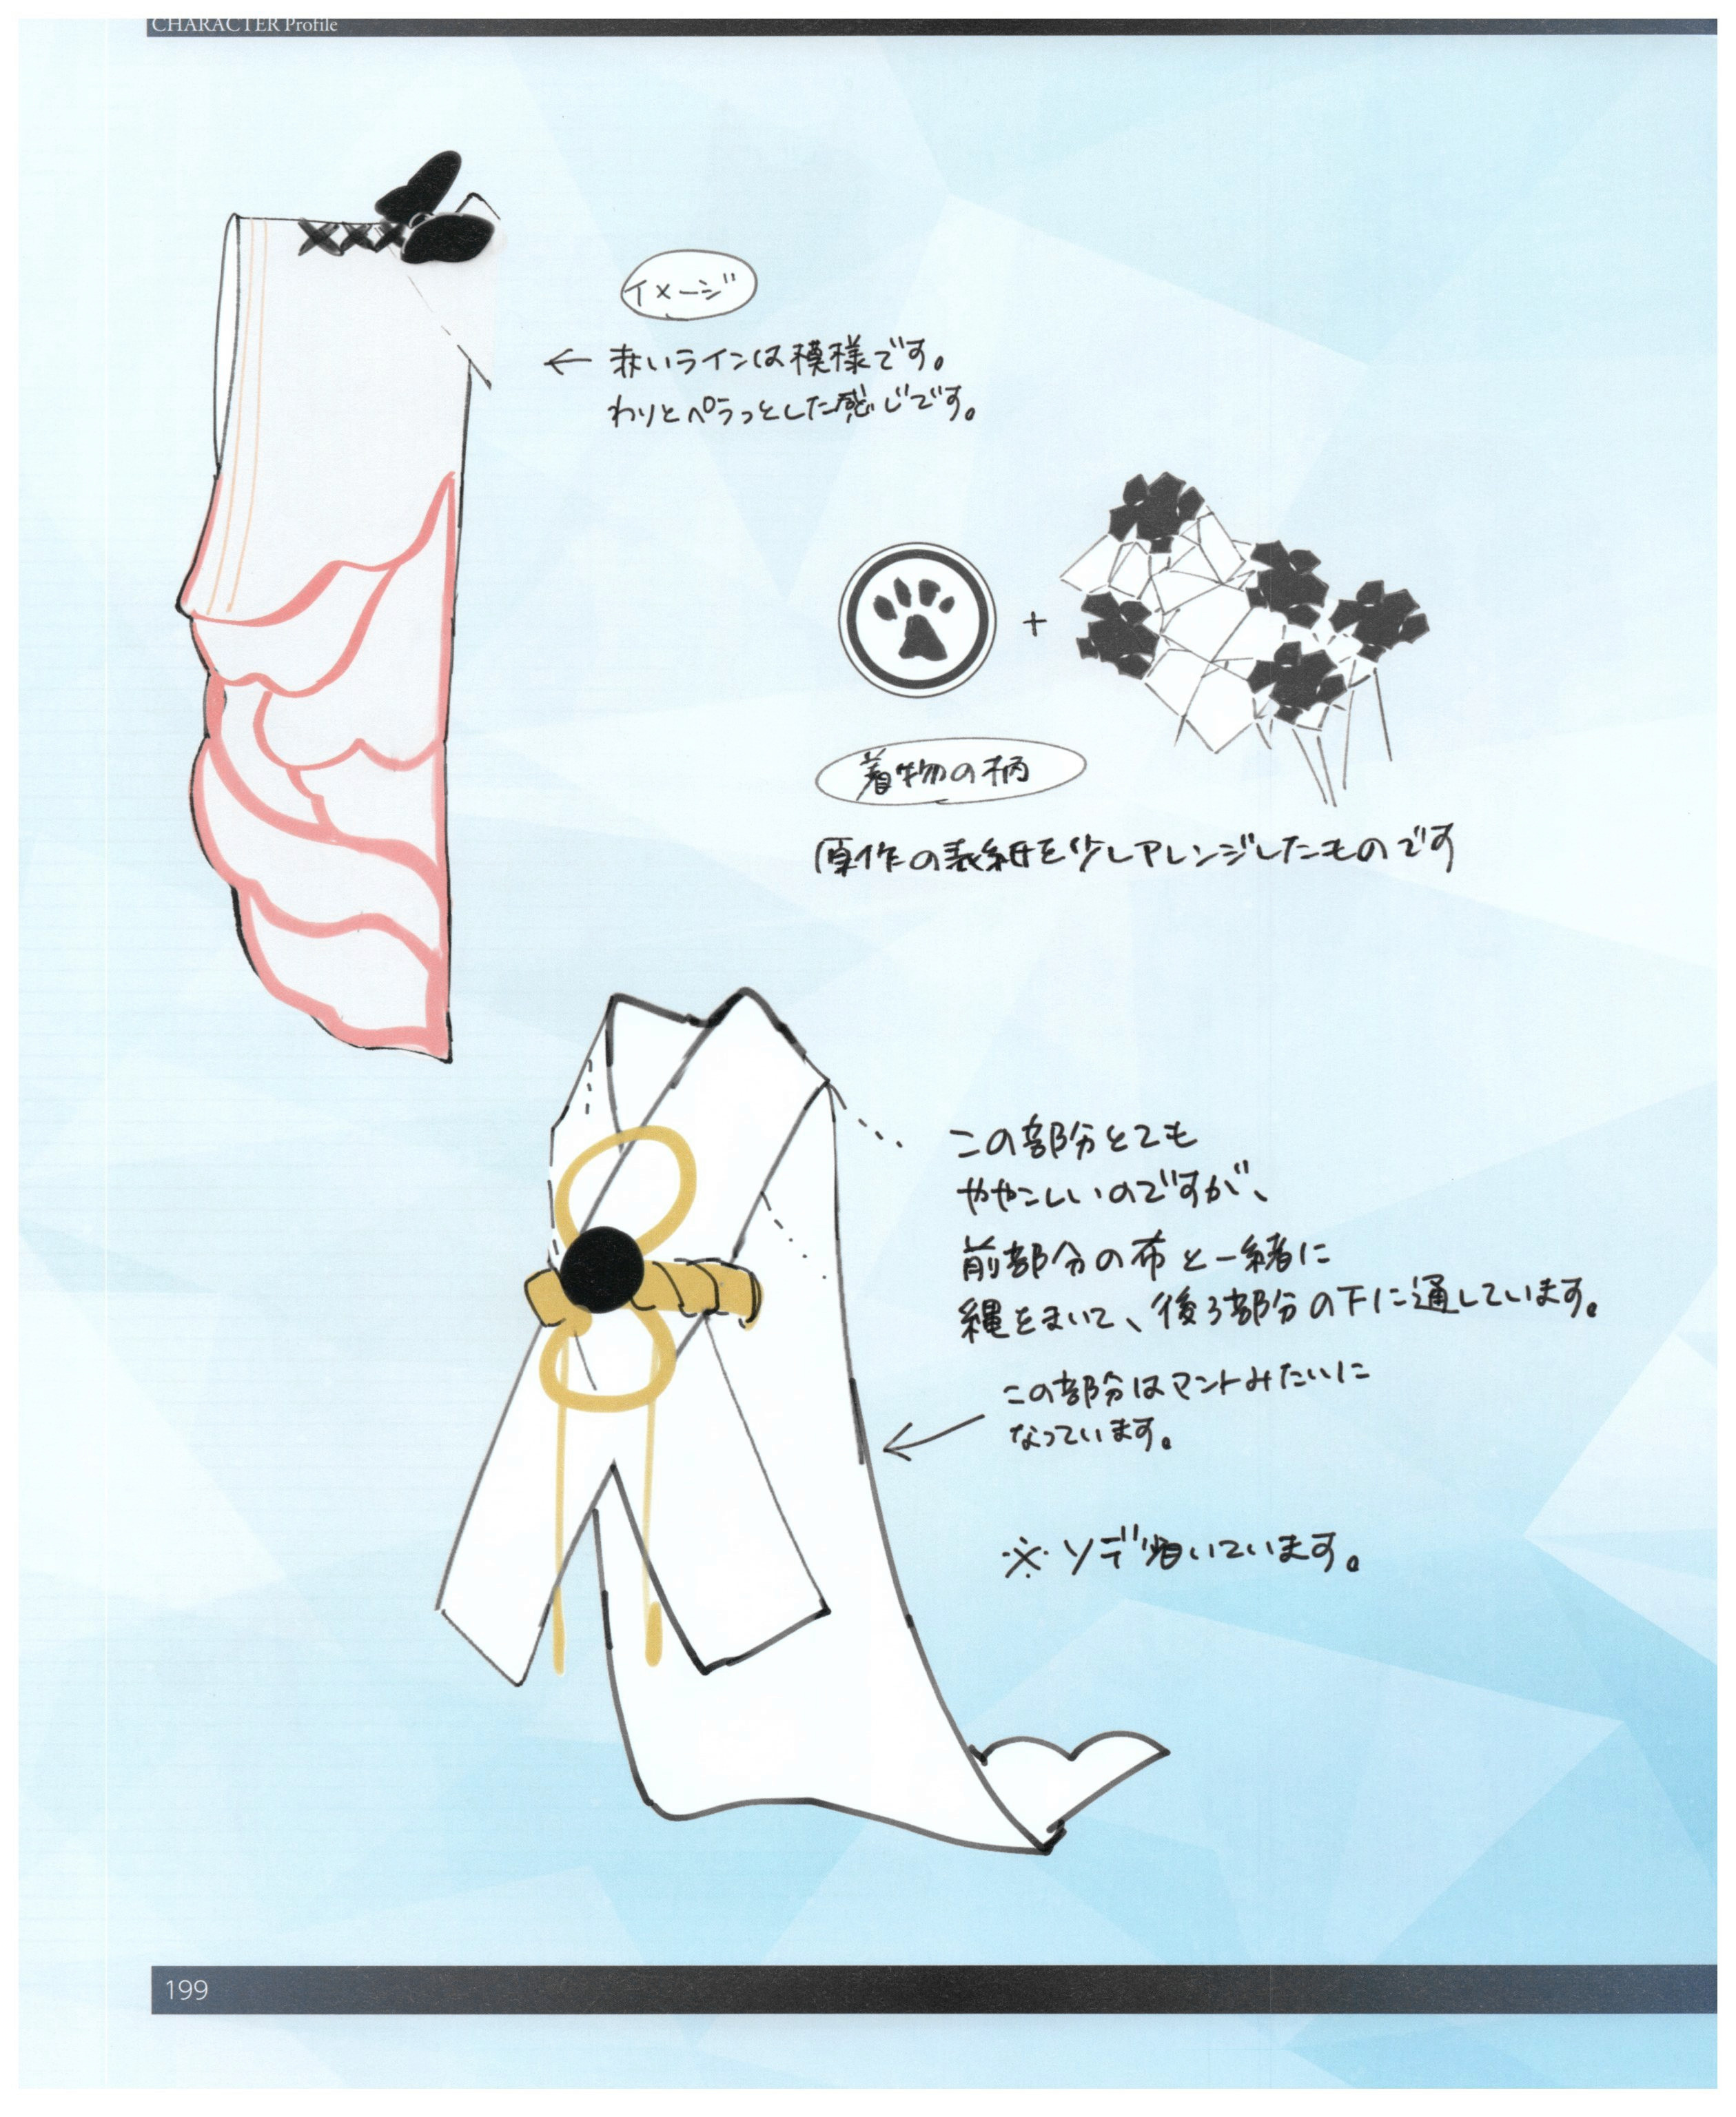 CHARACTER Profile
イメージ
← 赤いラインは模様です。
わりとペラっとした感じです。
+
着物の柄
原作の表紙を少しアレンジしたものです
この部分とても
ややこしいのですが、
前部分の布と一緒に
縄をまいて、後ろ部分の下に通しています。
この部分はマントみたいに
なっています。
※ソデ いています。
199